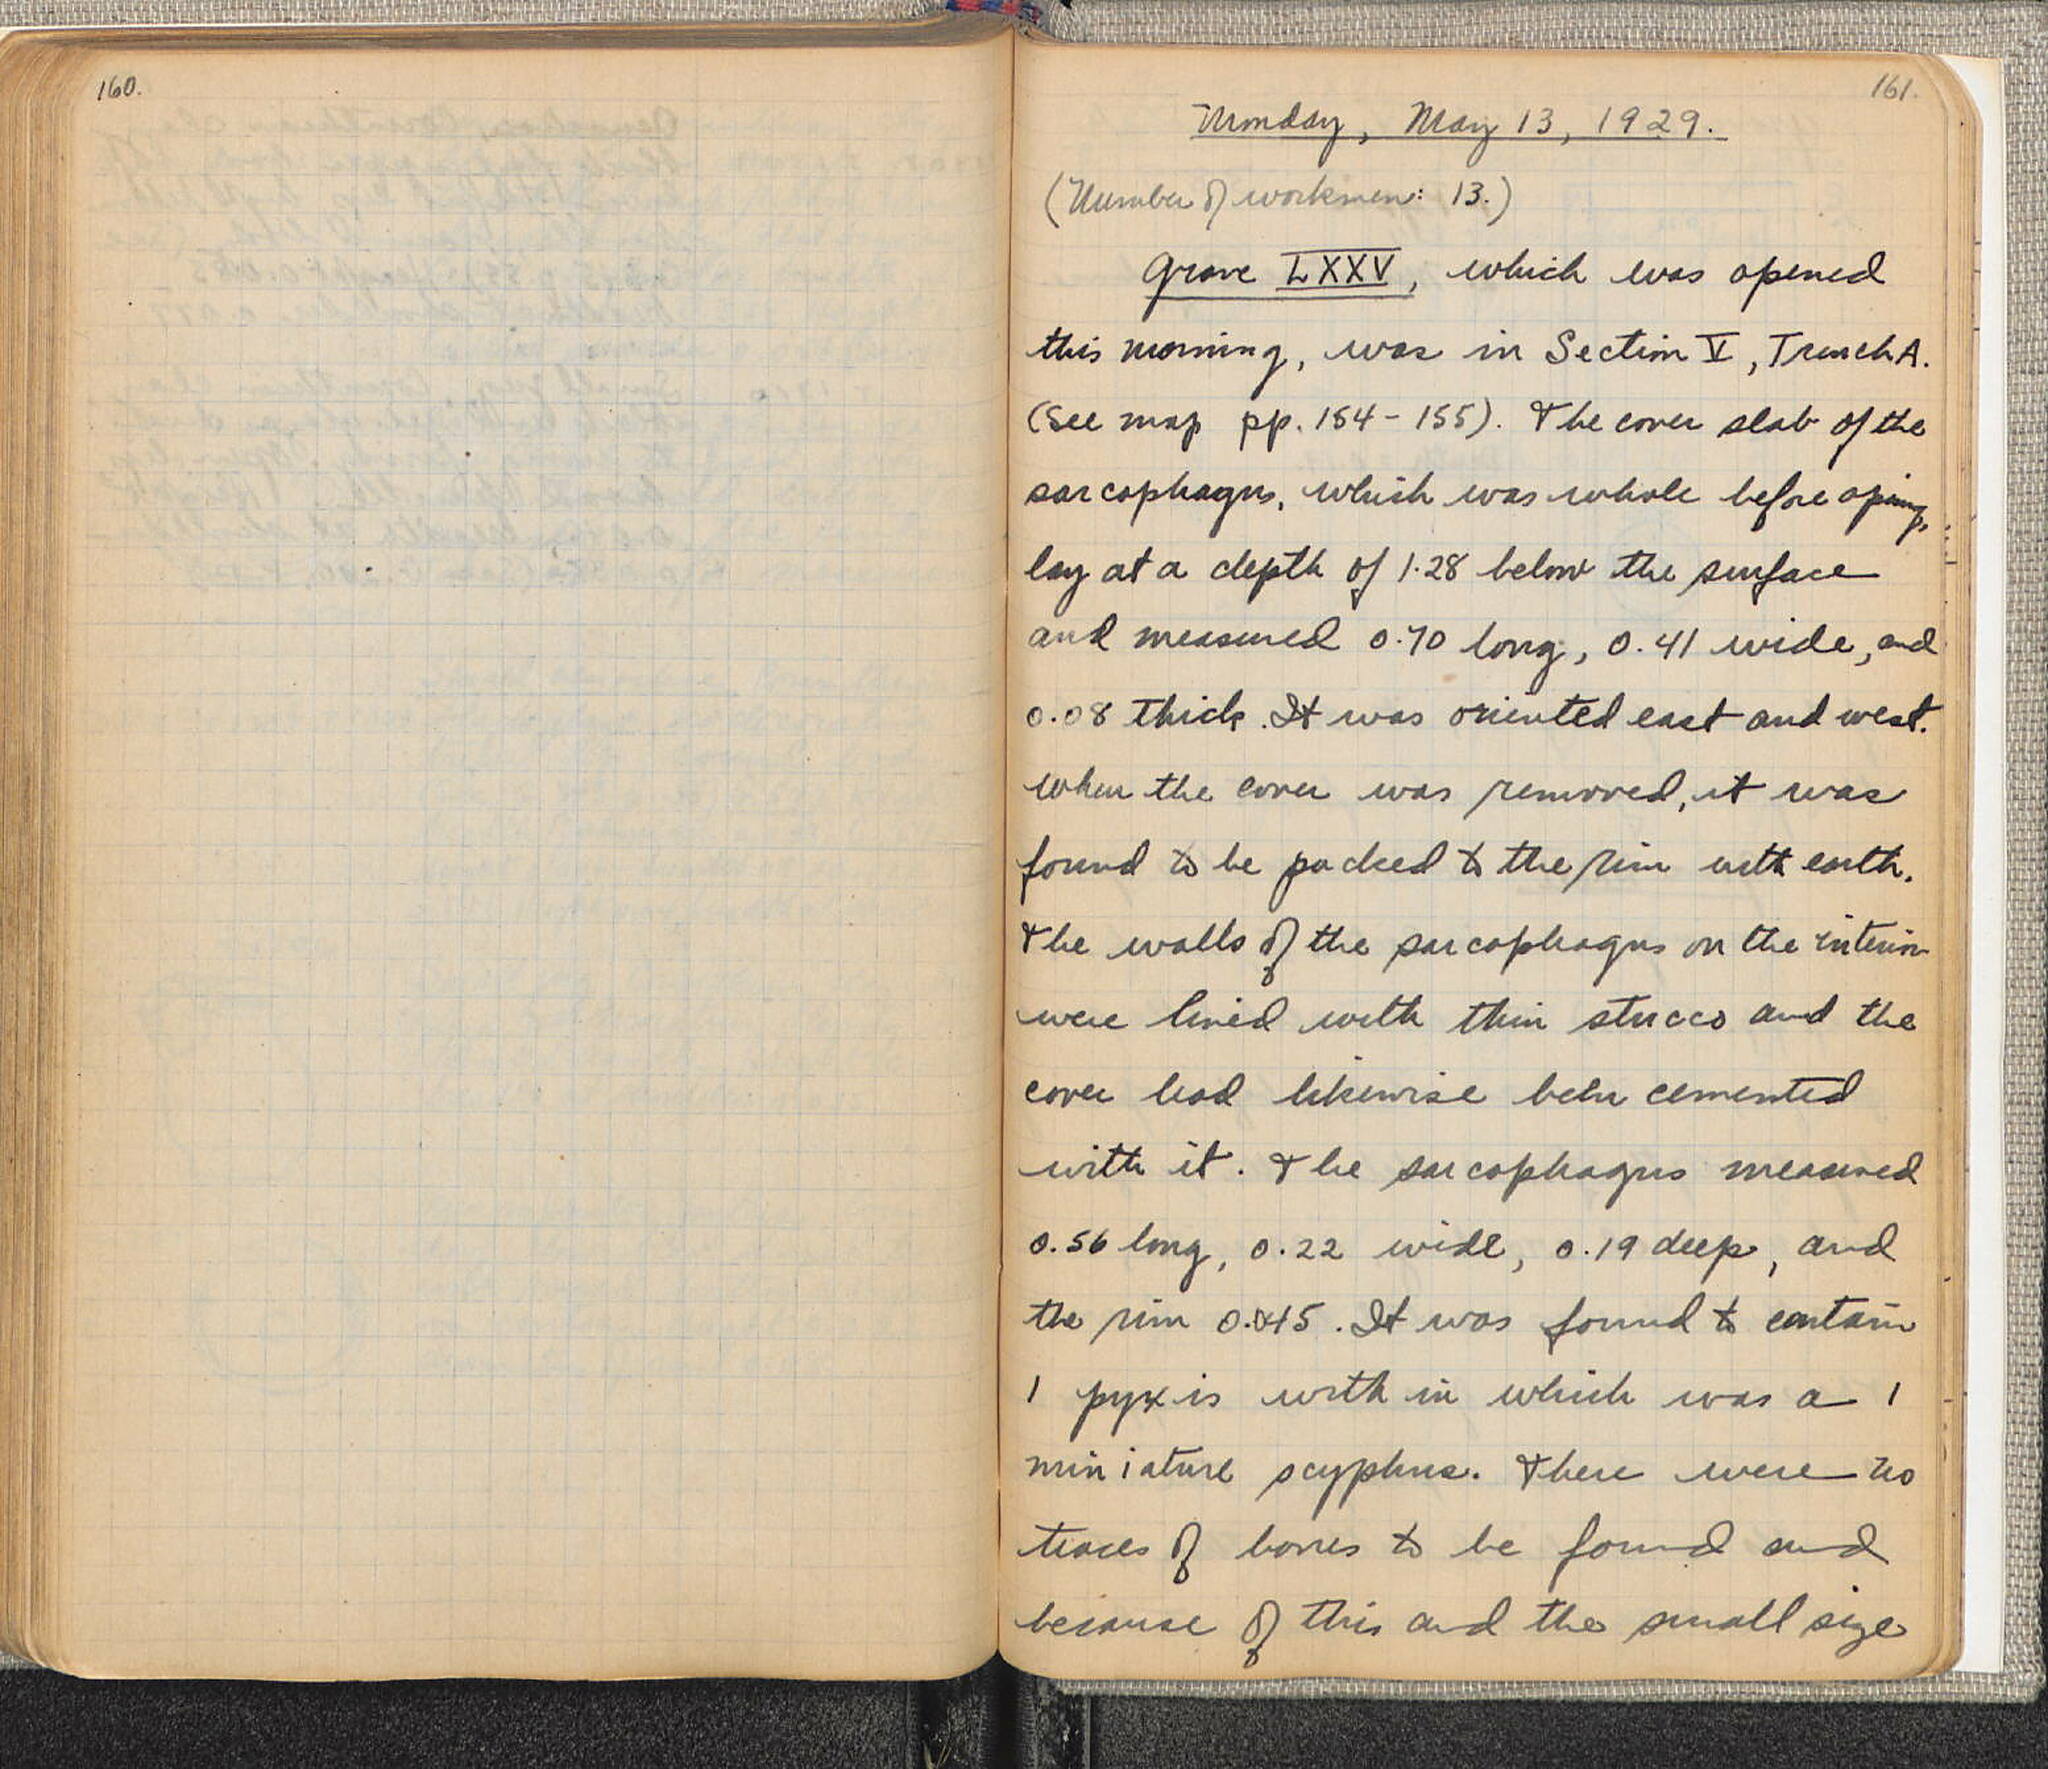 160.
161.
Monday, May 13, 1929.
(Number of workmen: 13.)
Grave LXXV, which was opened
this morning, was in Section V, Trench A.
(See map pp. 154 - 155). The cover slab of the
sarcophagus, which was whole before opening,
lay at a depth of 1.28 below the surface
and measured 0.70 long, 0.41 wide, and
0.08 thick. It was oriented east and west.
When the cover was removed, it was
found to be packed to the rim with earth.
The walls of the sarcophagus on the interior
were lined with thin stucco and the
cover had likewise been cemented
with it. The sarcophagus measured
0.56 long, 0.22 wide, 0.19 deep, and
the rim 0.045. It was found to contain
1 pyxis with in which was a 1
miniature scyphus. There were no
traces of bones to be found and
because of this and the small size